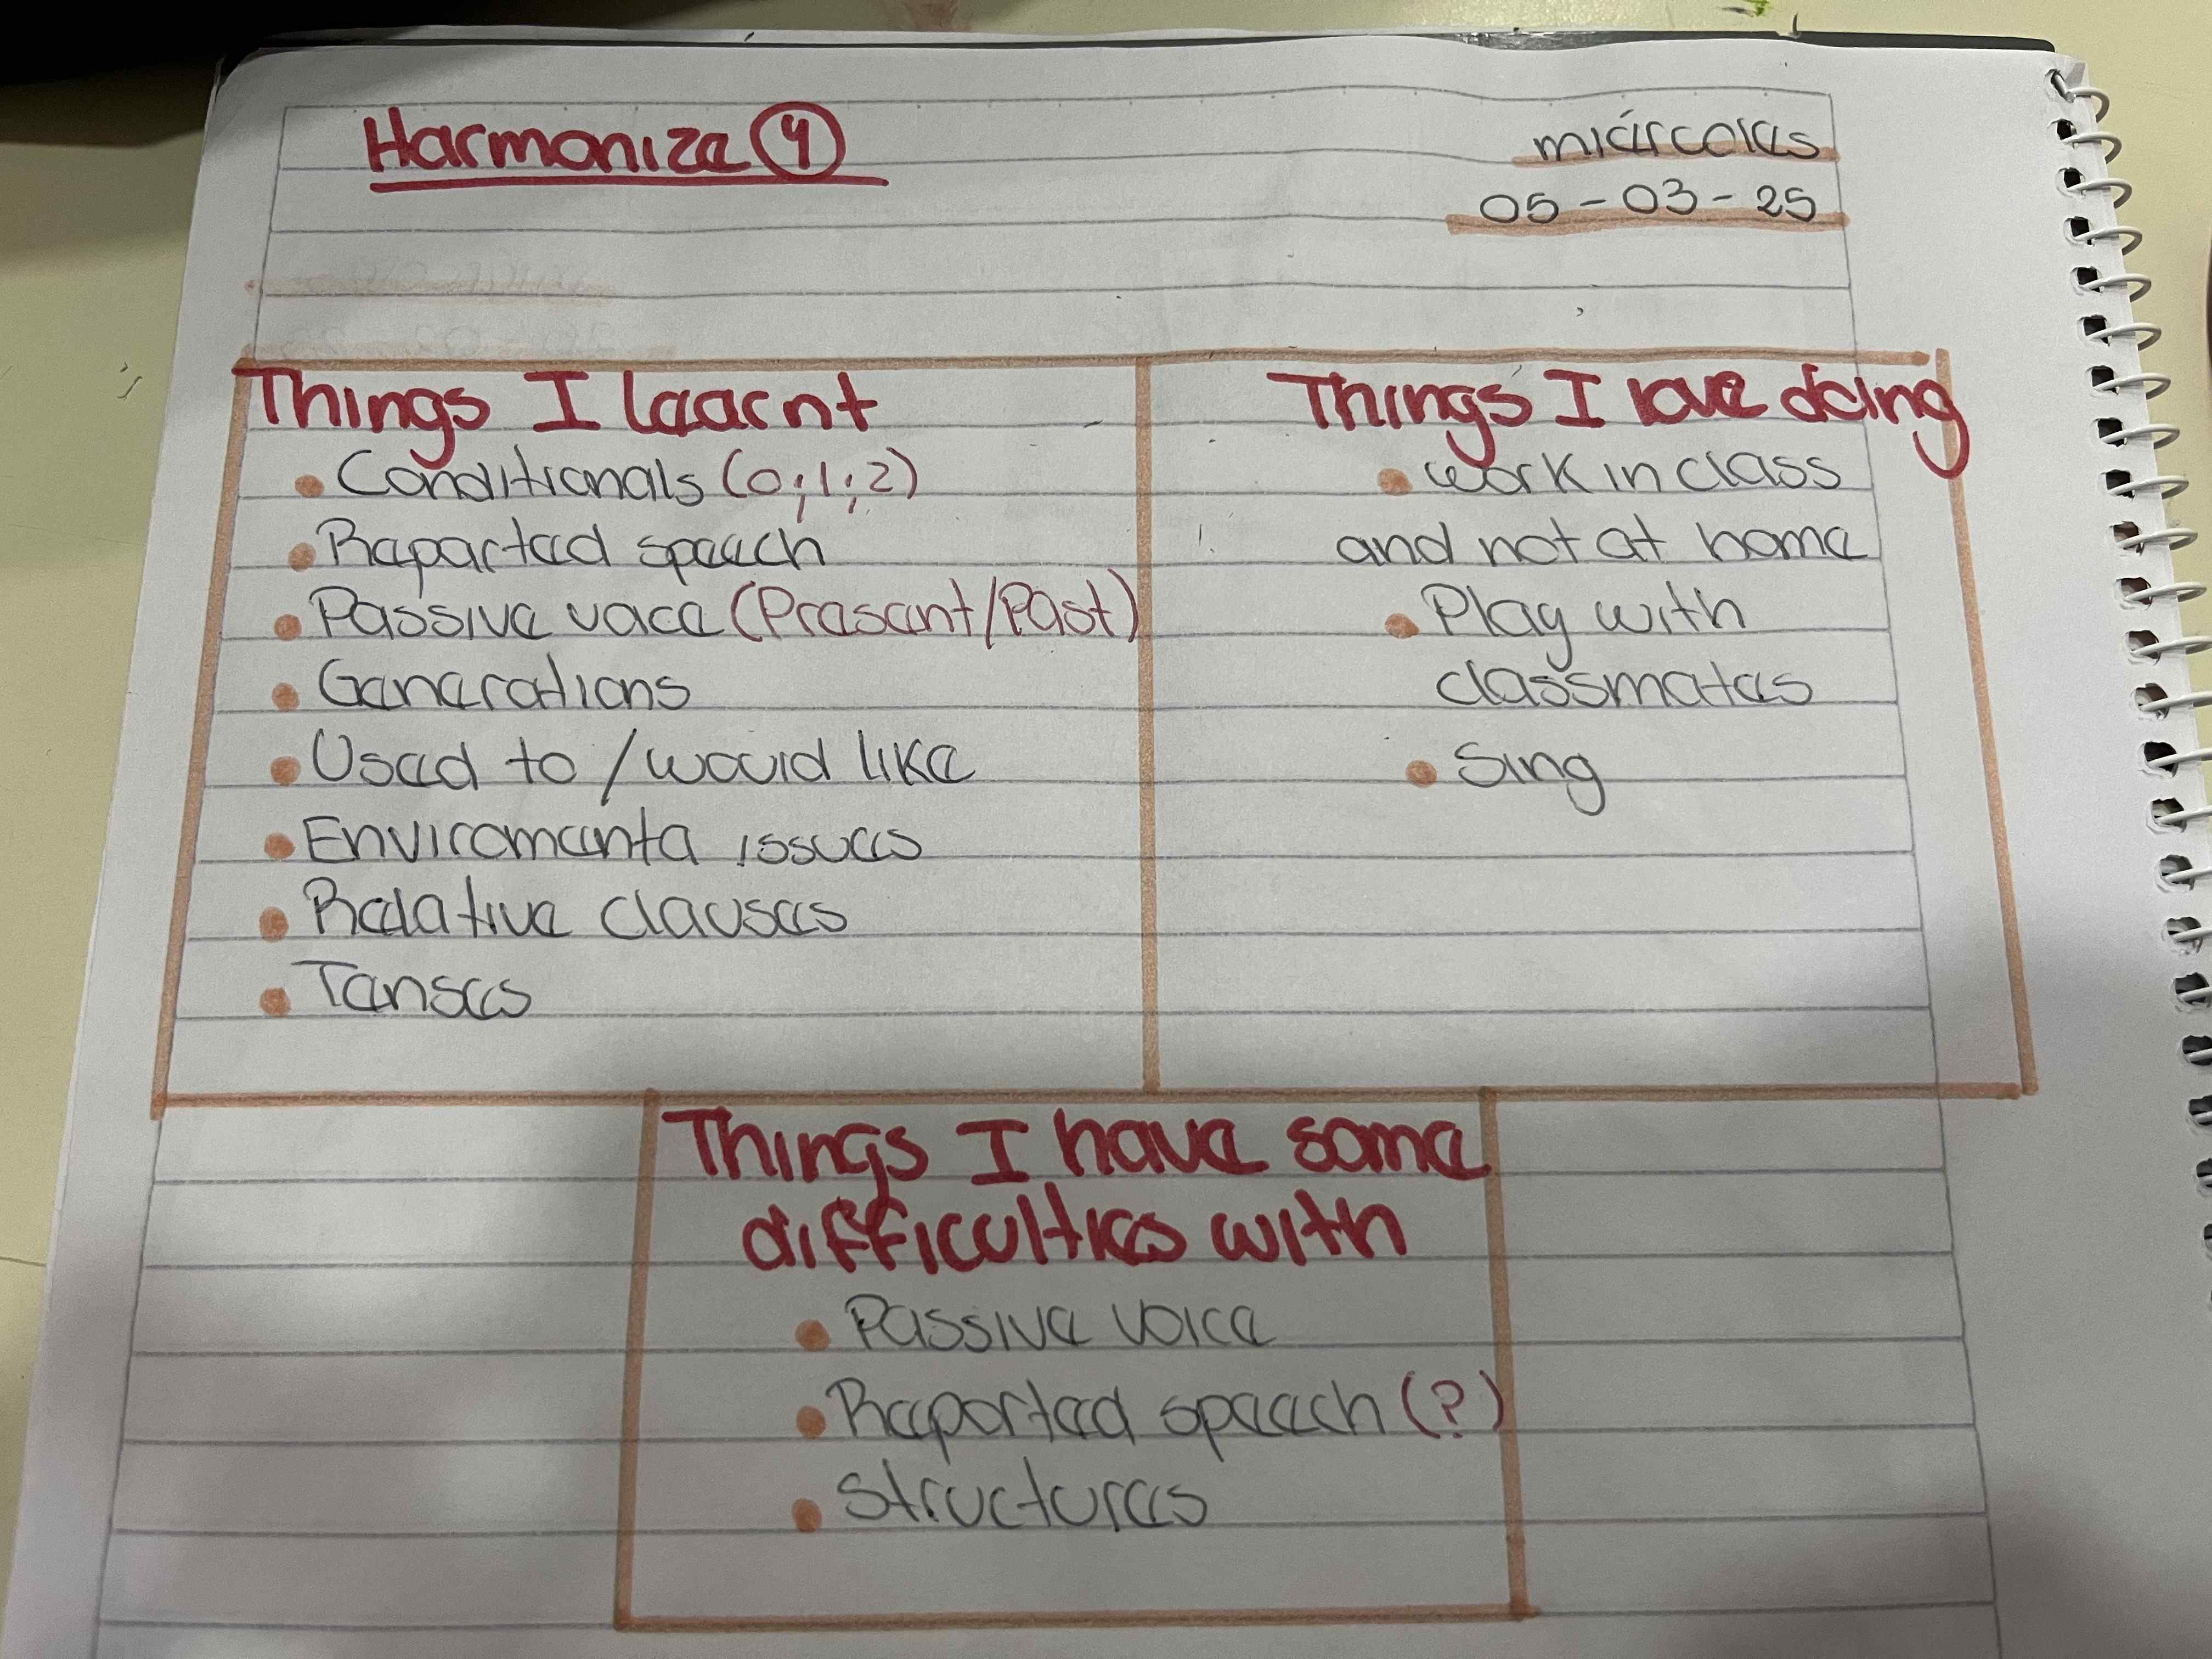 Harmonize 4
miércoles
05-03-25
Things I learnt
Things I love doing
• Conditionals (0;1;2)
• Reported speech
• Passive voce (Present/Past)
• Generations
• Used to / would like
• Enviromenta issues
• Relative clauses
• Tenses
• work in class
and not at home
• Play with
classmates
• Sing
Things I have some
difficulties with
• Passive voice
• Reported speech (?)
• structures